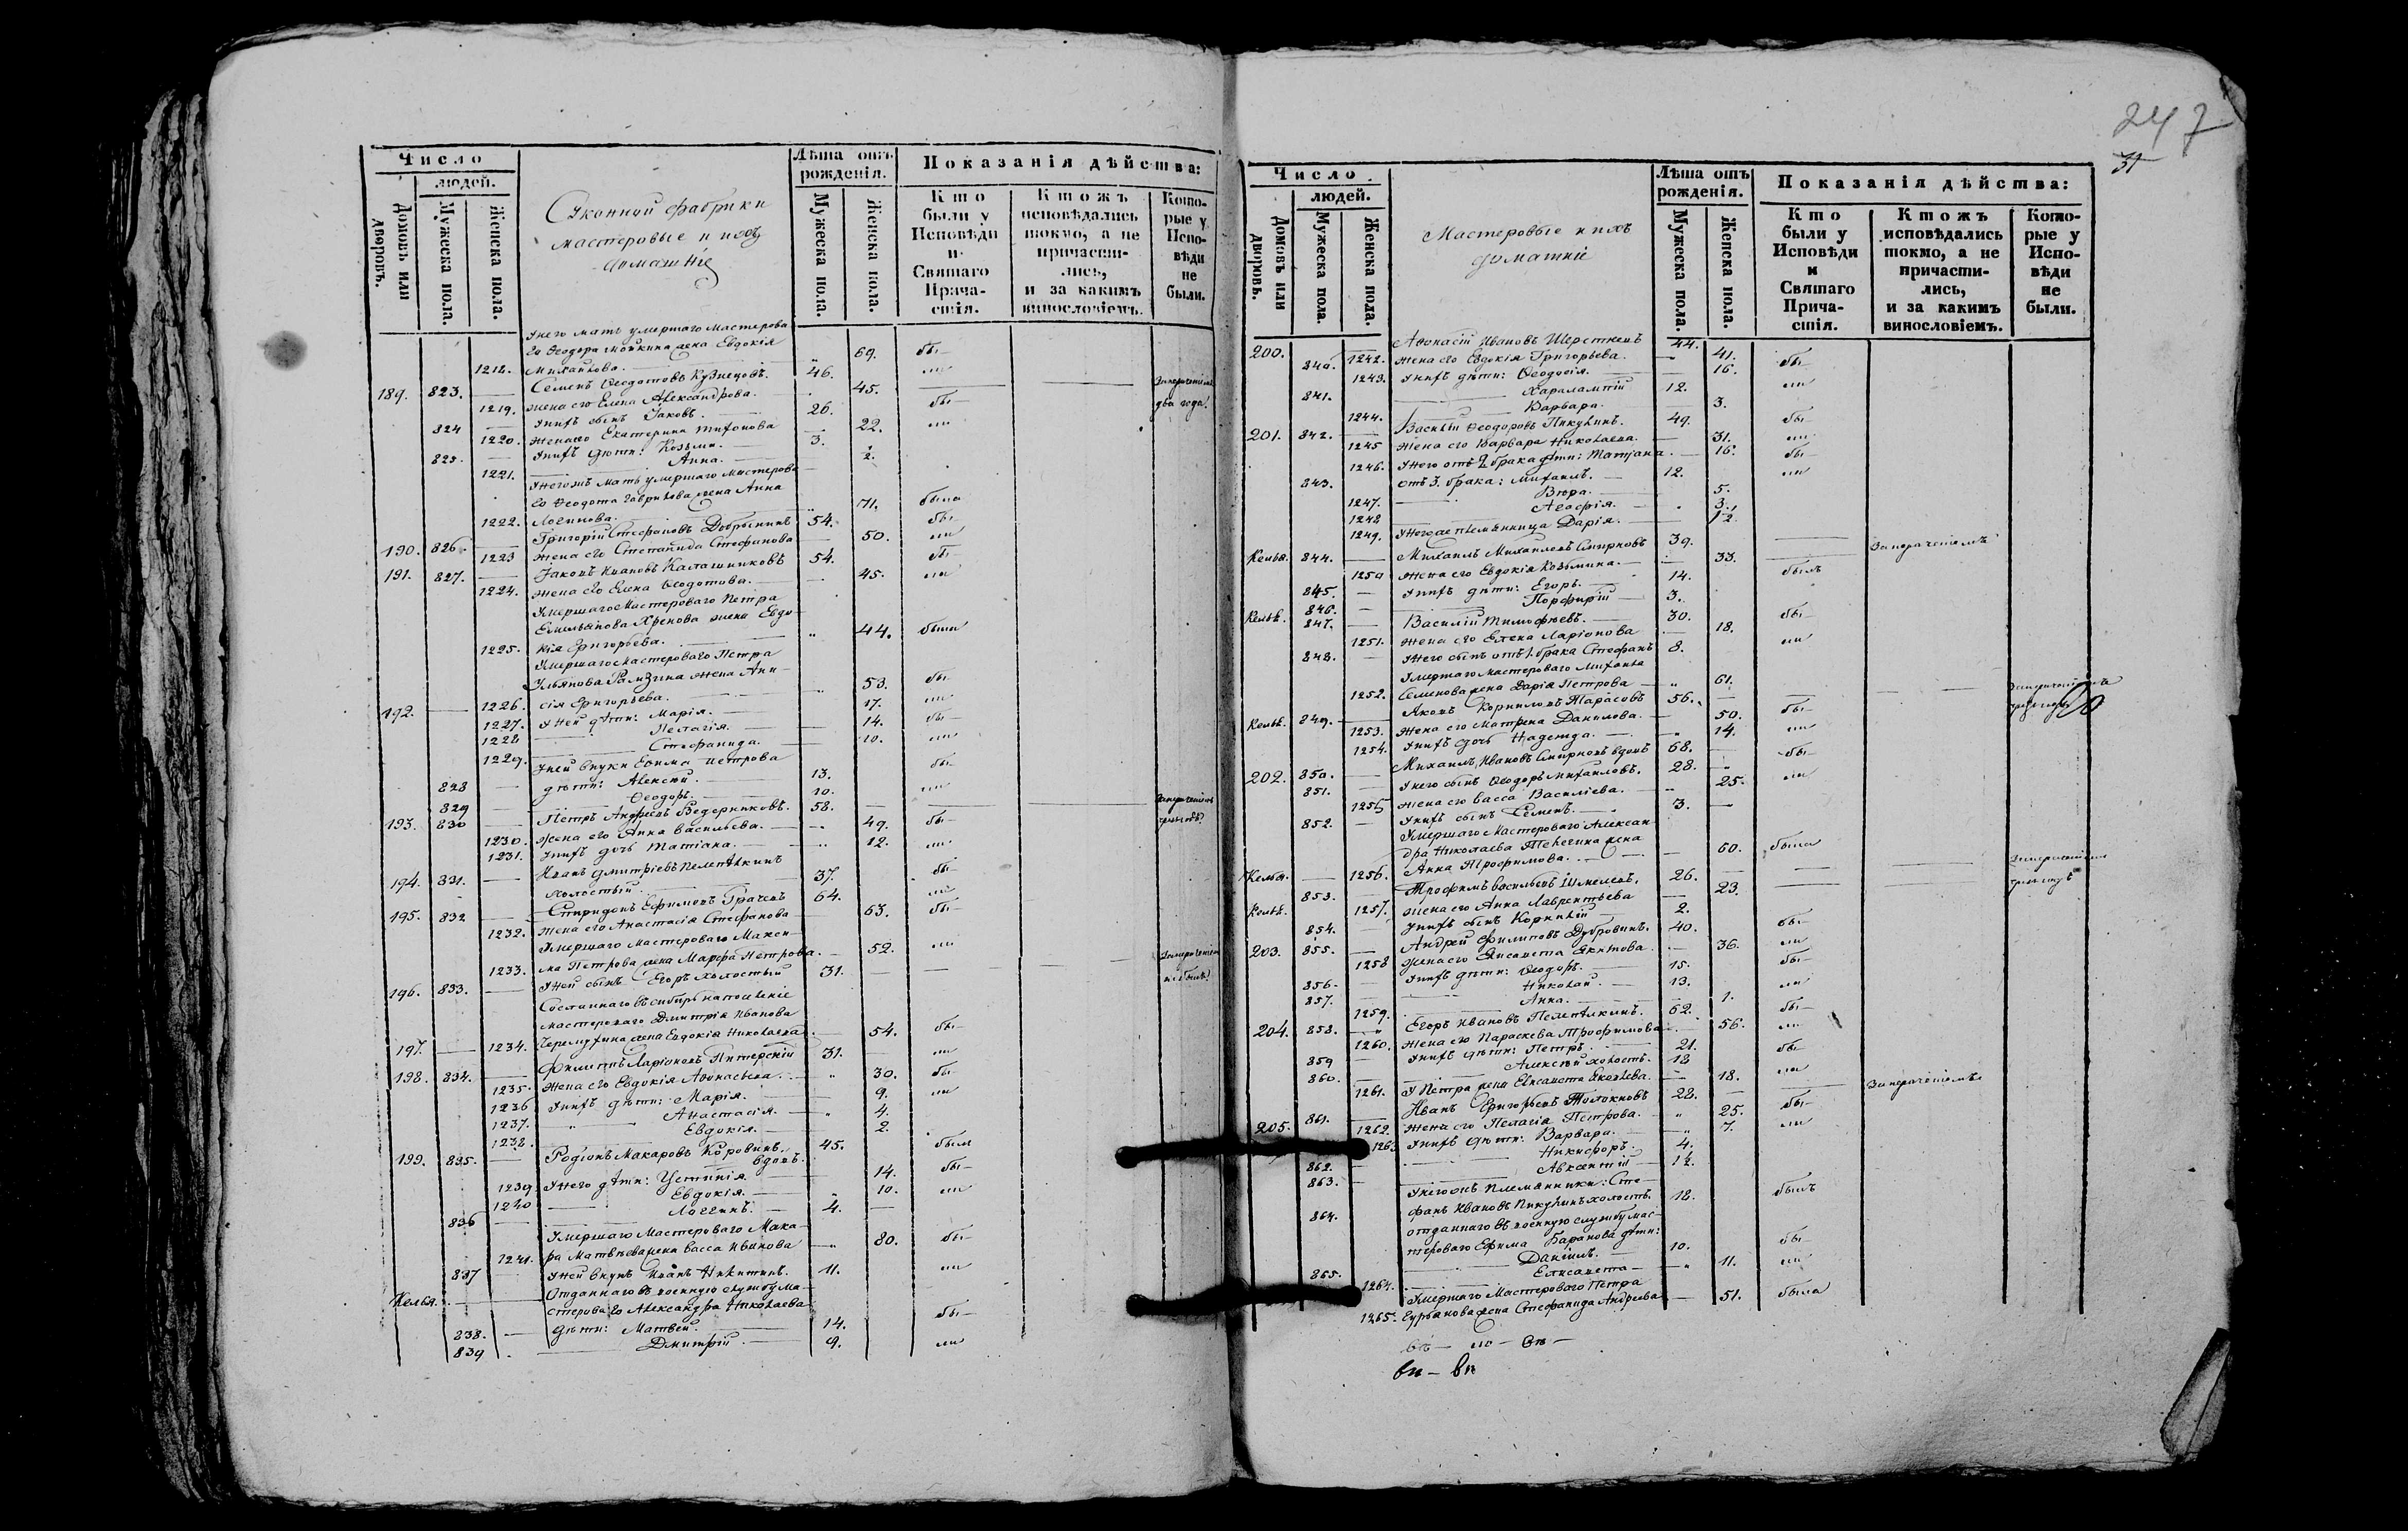 Число
людей.
Домовъ или дворовъ.
Мужеска пола.
Женска пола.
Суконной фабрики
мастеровые и ихъ
домашніе
Лѣта отъ
рожденія.
Мужеска пола.
Женска пола.
Показанія дѣйства:
Кто
были у
Исповѣди
и
Святаго
Прича-
стія.
Ктожъ
исповѣдались
токмо, а не
причасти-
лись,
и за какимъ
винословіемъ.
Кото-
рые у
Испо-
вѣди
не
были.
У него мать умершаго мастерова
го Ѳеодора жена Евдокія
1218. Михайлова. 69. бы—
189. 823. Семенъ Ѳеодотовъ Кузнецовъ. 46.
1219. жена его Елена Александрова. 45. бы—
824 У нихъ сынъ Іаковъ. 26.
1220. жена его Екатерина Тифонова 22.
825. У нихъ дѣти: Козьма. 3.
1221. Анна. 2.
У негожъ мать умершаго мастерова
го Ѳеодота Гаврилова жена Анна
1222. Логинова. 71. была
190. 826. Григорій Стефановъ Добрынинъ 54. бы—
1223 жена его Степанида Стефанова 50. ли
191. 827. Іаковъ Ивановъ Калашниковъ 54. бы—
1224. жена его Елена Ѳеодотова. 45. ли
Умершаго мастероваго Петра
Емельянова Хренова жена Евдо-
1225. кія Григорьева. 44. была
Умершаго мастероваго Петра
Ульянова Рамзина жена Ани-
192. 1226. сія Григорьева. 53. бы—
1227. У ней дѣти: Марія. 17. ли
1228 Пелагія. 14. бы—
1229. Стефанида. 10. ли
У ней внуки Ефима Петрова
828 дѣти: Алексѣй. 13. бы—
829 Ѳеодоръ. 10. ли
193. 830 Петръ Андреевъ Ведерниковъ. 58.
1230. Жена его Анна Васильева. 49. бы—
1231. У нихъ дочь Татіана. 12. ли
194. 831. Иванъ Дмитріевъ Пелепѣлкинъ
холостый 37. бы—
195. 832 Спиридонъ Ефимовъ Грачевъ 64. ли
1232. жена его Анастасія Стефанова 63. бы—
Умершаго мастероваго Макси-
1233. ма Петрова жена Марфа Петрова. 52. ли
196. 833. У ней сынъ Егоръ холостый 31.
Сосланнаго въ сибирь на поселеніе
мастероваго Дмитрія Иванова
197. 1234. Черемухина жена Евдокія Николаева 54. бы—
198. 834. Филиппъ Ларіоновъ Питерскій 31. ли
1235. Жена его Евдокія Аѳонасьева. 30. бы—
1236 У нихъ дѣти: Марія. 9. ли
1237. Анастасія. 4.
1238. Евдокія. 2.
199. 835. Родіонъ Макаровъ Коровинъ, 45. былъ
вдовъ.
1239. У него дѣти: Устинія. 14. бы—
1240 Евдокія. 10. ли
836 Логгинъ. 4.
Умершаго мастероваго Мака-
1241. ра Матвѣева жена Васса Иванова 80. бы—
837 У ней внукъ Иванъ Никитинъ. 11. ли
Келья. Отданнаго въ военную службу ма-
стероваго Александра Николаева
838. дѣти: Матвей. 14. бы—
839 Дмитрій. 9. ли
247
31
Число
людей.
Домовъ или дворовъ.
Мужеска пола.
Женска пола.
Мастеровые и ихъ
домашніе
Лѣта отъ
рожденія.
Мужеска пола.
Женска пола.
Показанія дѣйства:
Кто
были у
Исповѣди
и
Святаго
Прича-
стія.
Ктожъ
исповѣдались
токмо, а не
причасти-
лись,
и за какимъ
винословіемъ.
Кото-
рые у
Испо-
вѣди
не
были.
200. 840. Аѳонасій Ивановъ Шерстневъ 44.
1242. Жена его Евдокія Григорьева. 41. бы—
1243. У нихъ дѣти: Ѳеодосія. 16.
841. Харалампій 12. ли
1244. Варвара. 3.
201. 842. Василій Ѳеодоровъ Пикулинъ. 49. бы—
1245 Жена его Варвара Николаева. 31. ли
1246. У него отъ 2 брака дѣти: Татіана. 16. бы—
843. отъ 3. брака: Михаилъ. 12. ли
1247. Вѣра. 5.
1248 Агафія. 3.
1249. У него же племянница Дарія. 12.
Келья. 844. Михаилъ Михайловъ Смирновъ 39.
1250 Жена его Евдокія Козьмина. 33.
845. У нихъ дѣти: Егоръ. 14. былъ
846. Порфирій 3.
Келья. 847. Василій Тимофеевъ. 30. бы—
1251. Жена его Елена Ларіонова 18. ли
848. У него сынъ отъ 1. брака Стефанъ 8.
Умершаго мастероваго Михаила
1252. Семенова жена Дарія Петрова 61.
Келья. 849. Аковъ Корниловъ Тарасовъ 56.
1253. Жена его Матрена Данилова. 50. бы—
1254. У нихъ дочь Надежда. 14. ли
202. 850. Михаилъ Ивановъ Смирновъ вдовъ 68. бы—
851. У него сынъ Ѳеодоръ Михайловъ. 28.
1255 Жена его Васса Василіева. 25. ли
852. У нихъ сынъ Семенъ. 3.
Умершаго мастероваго Алексан-
дра Николаева жена
Келья. 1256. Анна Трофимова. 60. была
Келья. 853. Трофимъ Васильевъ Шмелевъ. 26.
1257. Жена его Анна Лаврентьева 23.
854. У нихъ сынъ Корнилій 2.
203. 855. Андрей Филиповъ Дубровинъ. 40. бы—
1258 Жена его Елисавета Екимова. 36. ли
856. У нихъ дѣти: Ѳеодоръ. 15. бы—
857. Николай. 13. ли
1259. Анна. 1.
204. 858. Егоръ Ивановъ Пелепѣлкинъ. 62. бы—
1260. Жена его Параскева Трофимова 56. ли
859 У нихъ дѣти: Петръ. 21. бы—
860. Алексѣй холостъ. 18
1261. У Петра жена Елисавета Яковлева. 18. ли
205. 861. Иванъ Григорьевъ Толокновъ 28.
1262. Жена его Пелагія Петрова. 25. бы—
1263 У нихъ дѣти: Варвара. 7. ли
862. Никифоръ. 4.
863. Авксентій 1½.
У негожъ племянники: Сте-
864. фанъ Ивановъ Пикулинъ холостъ. 18. былъ
отданнаго въ военную службу мас-
тероваго Ефима Баранова дѣти:
865. Даніилъ. 10. бы—
1264. Елисавета 11. ли
Умершаго мастероваго Петра
1265. Гурьянова жена Стефанида Андреева 51. была